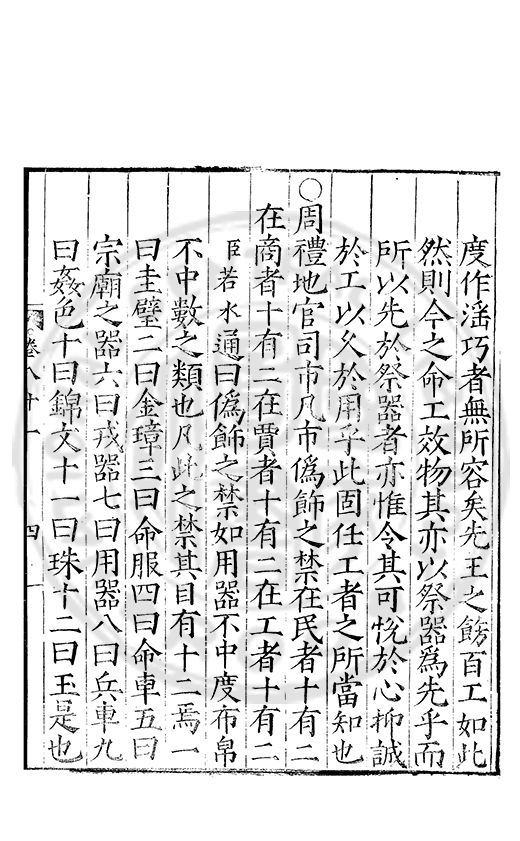 度作滛巧者無所容矣先王之飭百工如此
然則今之命工效物其亦以祭器爲先乎而
所以先於祭器者亦惟令其可恱於心抑誠
於工以久於用乎此固任工者之所當知也
○周禮地官司市凡市僞飾之禁在民者十有二
在商者十有二在賈者十有二在工者十有二
臣若水通曰僞飾之禁如用器不中度布帛
不中數之類也凡此之禁其目有十二焉一
曰圭璧二曰金璋三曰命服四曰命車五曰
宗廟之器六曰戎器七曰用器八曰兵車九
曰姦色十曰錦文十一曰珠十二曰玉是也
卷八十一
四